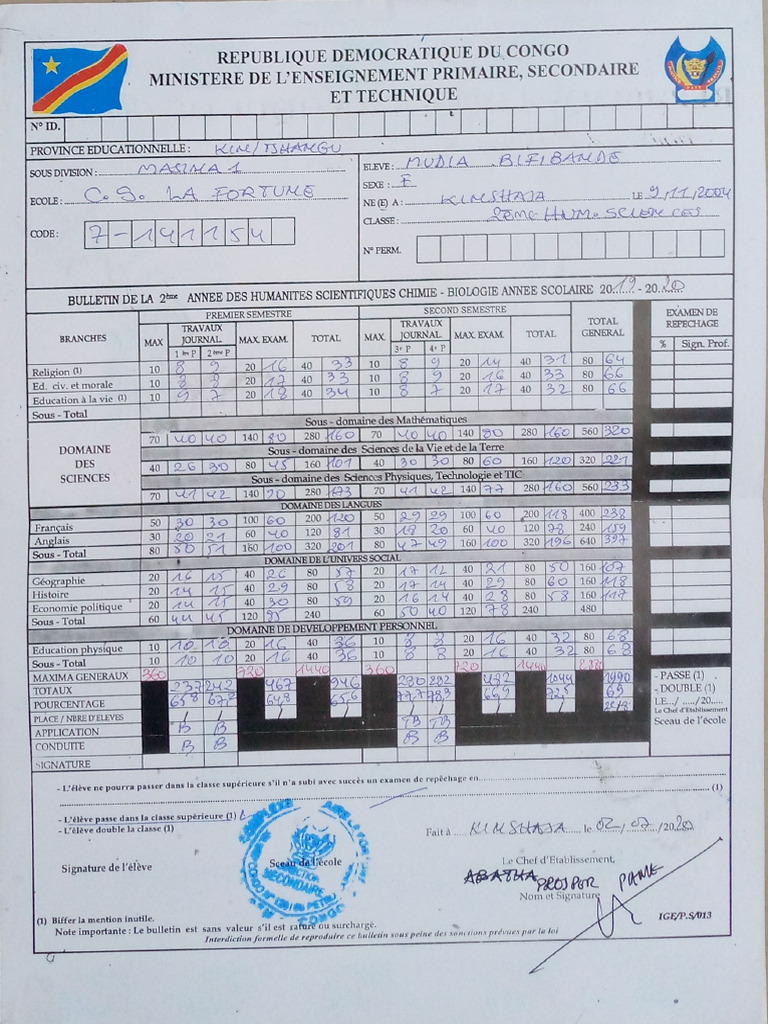 REPUBLIQUE DEMOCRATIQUE DU CONGO
MINISTERE DE L'ENSEIGNEMENT PRIMAIRE, SECONDAIRE
ET TECHNIQUE
N° ID.
PROVINCE EDUCATIONNELLE : KIN/TSHANGU
SOUS DIVISION : MASINA 1
ECOLE : C.S. LA FORTUNE
CODE : 7-141154
ELEVE : MUDIA BIFIBANDE
SEXE : F
NE (E) A : KINSHASA LE 9/11/2004
CLASSE : 2ème HUM. SCIENCES
N° PERM.
BULLETIN DE LA 2ème ANNEE DES HUMANITES SCIENTIFIQUES CHIMIE - BIOLOGIE ANNEE SCOLAIRE 2019 - 2020
BRANCHES PREMIER SEMESTRE SECOND SEMESTRE TOTAL GENERAL EXAMEN DE REPECHAGE
MAX TRAVAUX JOURNAL MAX. EXAM. TOTAL MAX. TRAVAUX JOURNAL MAX. EXAM. TOTAL
1 ère P 2ème P 3e P 4e P % Sign. Prof.
Religion (1) 10 8 9 20 16 40 33 10 8 9 20 14 40 31 80 64
Ed. civ. et morale 10 8 8 20 17 40 33 10 8 9 20 16 40 33 80 66
Education à la vie (1) 10 9 7 20 18 40 34 10 8 7 20 17 40 32 80 66
Sous - Total
DOMAINE DES SCIENCES
Sous - domaine des Mathématiques
70 40 40 140 80 280 160 70 40 40 140 80 280 160 560 320
Sous - domaine des Sciences de la Vie et de la Terre
40 26 30 80 45 160 101 40 30 30 80 60 160 120 320 221
Sous - domaine des Sciences Physiques, Technologie et TIC
70 41 42 140 280 173 70 41 42 140 77 280 160 560 233
DOMAINE DES LANGUES
Français 50 30 30 100 60 200 120 50 29 29 100 60 200 118 400 238
Anglais 30 20 21 60 40 120 81 30 18 20 60 40 120 78 240 159
Sous - Total 80 50 51 160 100 320 201 80 47 49 160 100 320 196 640 397
DOMAINE DE L'UNIVERS SOCIAL
Géographie 20 16 15 40 26 80 57 20 17 12 40 21 80 50 160 107
Histoire 20 14 15 40 29 80 58 20 17 14 40 29 80 60 160 118
Economie politique 20 14 15 40 30 80 59 20 16 14 40 28 80 58 160 117
Sous - Total 60 44 45 120 85 240 60 50 40 120 78 240 480
DOMAINE DE DEVELOPPEMENT PERSONNEL
Education physique 10 10 10 20 16 40 36 10 8 8 20 16 40 32 80 68
Sous - Total 10 10 10 20 16 40 36 10 8 8 20 16 40 32 80 68
MAXIMA GENERAUX 360 720 1440 360 720 1440 2880
TOTAUX 237 242 467 946 280 282 482 1044 1990
POURCENTAGE 65,8 67,2 64,8 65,6 77,7 78,3 66,9 72,5 69
PLACE / NBRE D'ELEVES
APPLICATION B B TB TB
CONDUITE B B B B
SIGNATURE
- PASSE (1)
- DOUBLE (1)
LE.../...../20....
Le Chef d'Etablissement
Sceau de l'école
- L'élève ne pourra passer dans la classe supérieure s'il n'a subi avec succès un examen de repêchage en
(1)
- L'élève passe dans la classe supérieure (1)
- L'élève double la classe (1)
Fait à KINSHASA le 02/07/2020
Signature de l'élève
Sceau de l'école
SECTION
SECONDAIRE
Le Chef d'Etablissement,
PROSPER PAME
Nom et Signature
(1) Biffer la mention inutile.
Note importante : Le bulletin est sans valeur s'il est raturé ou surchargé.
Interdiction formelle de reproduire ce bulletin sous peine des sanctions prévues par la loi
IGE/P.S/013